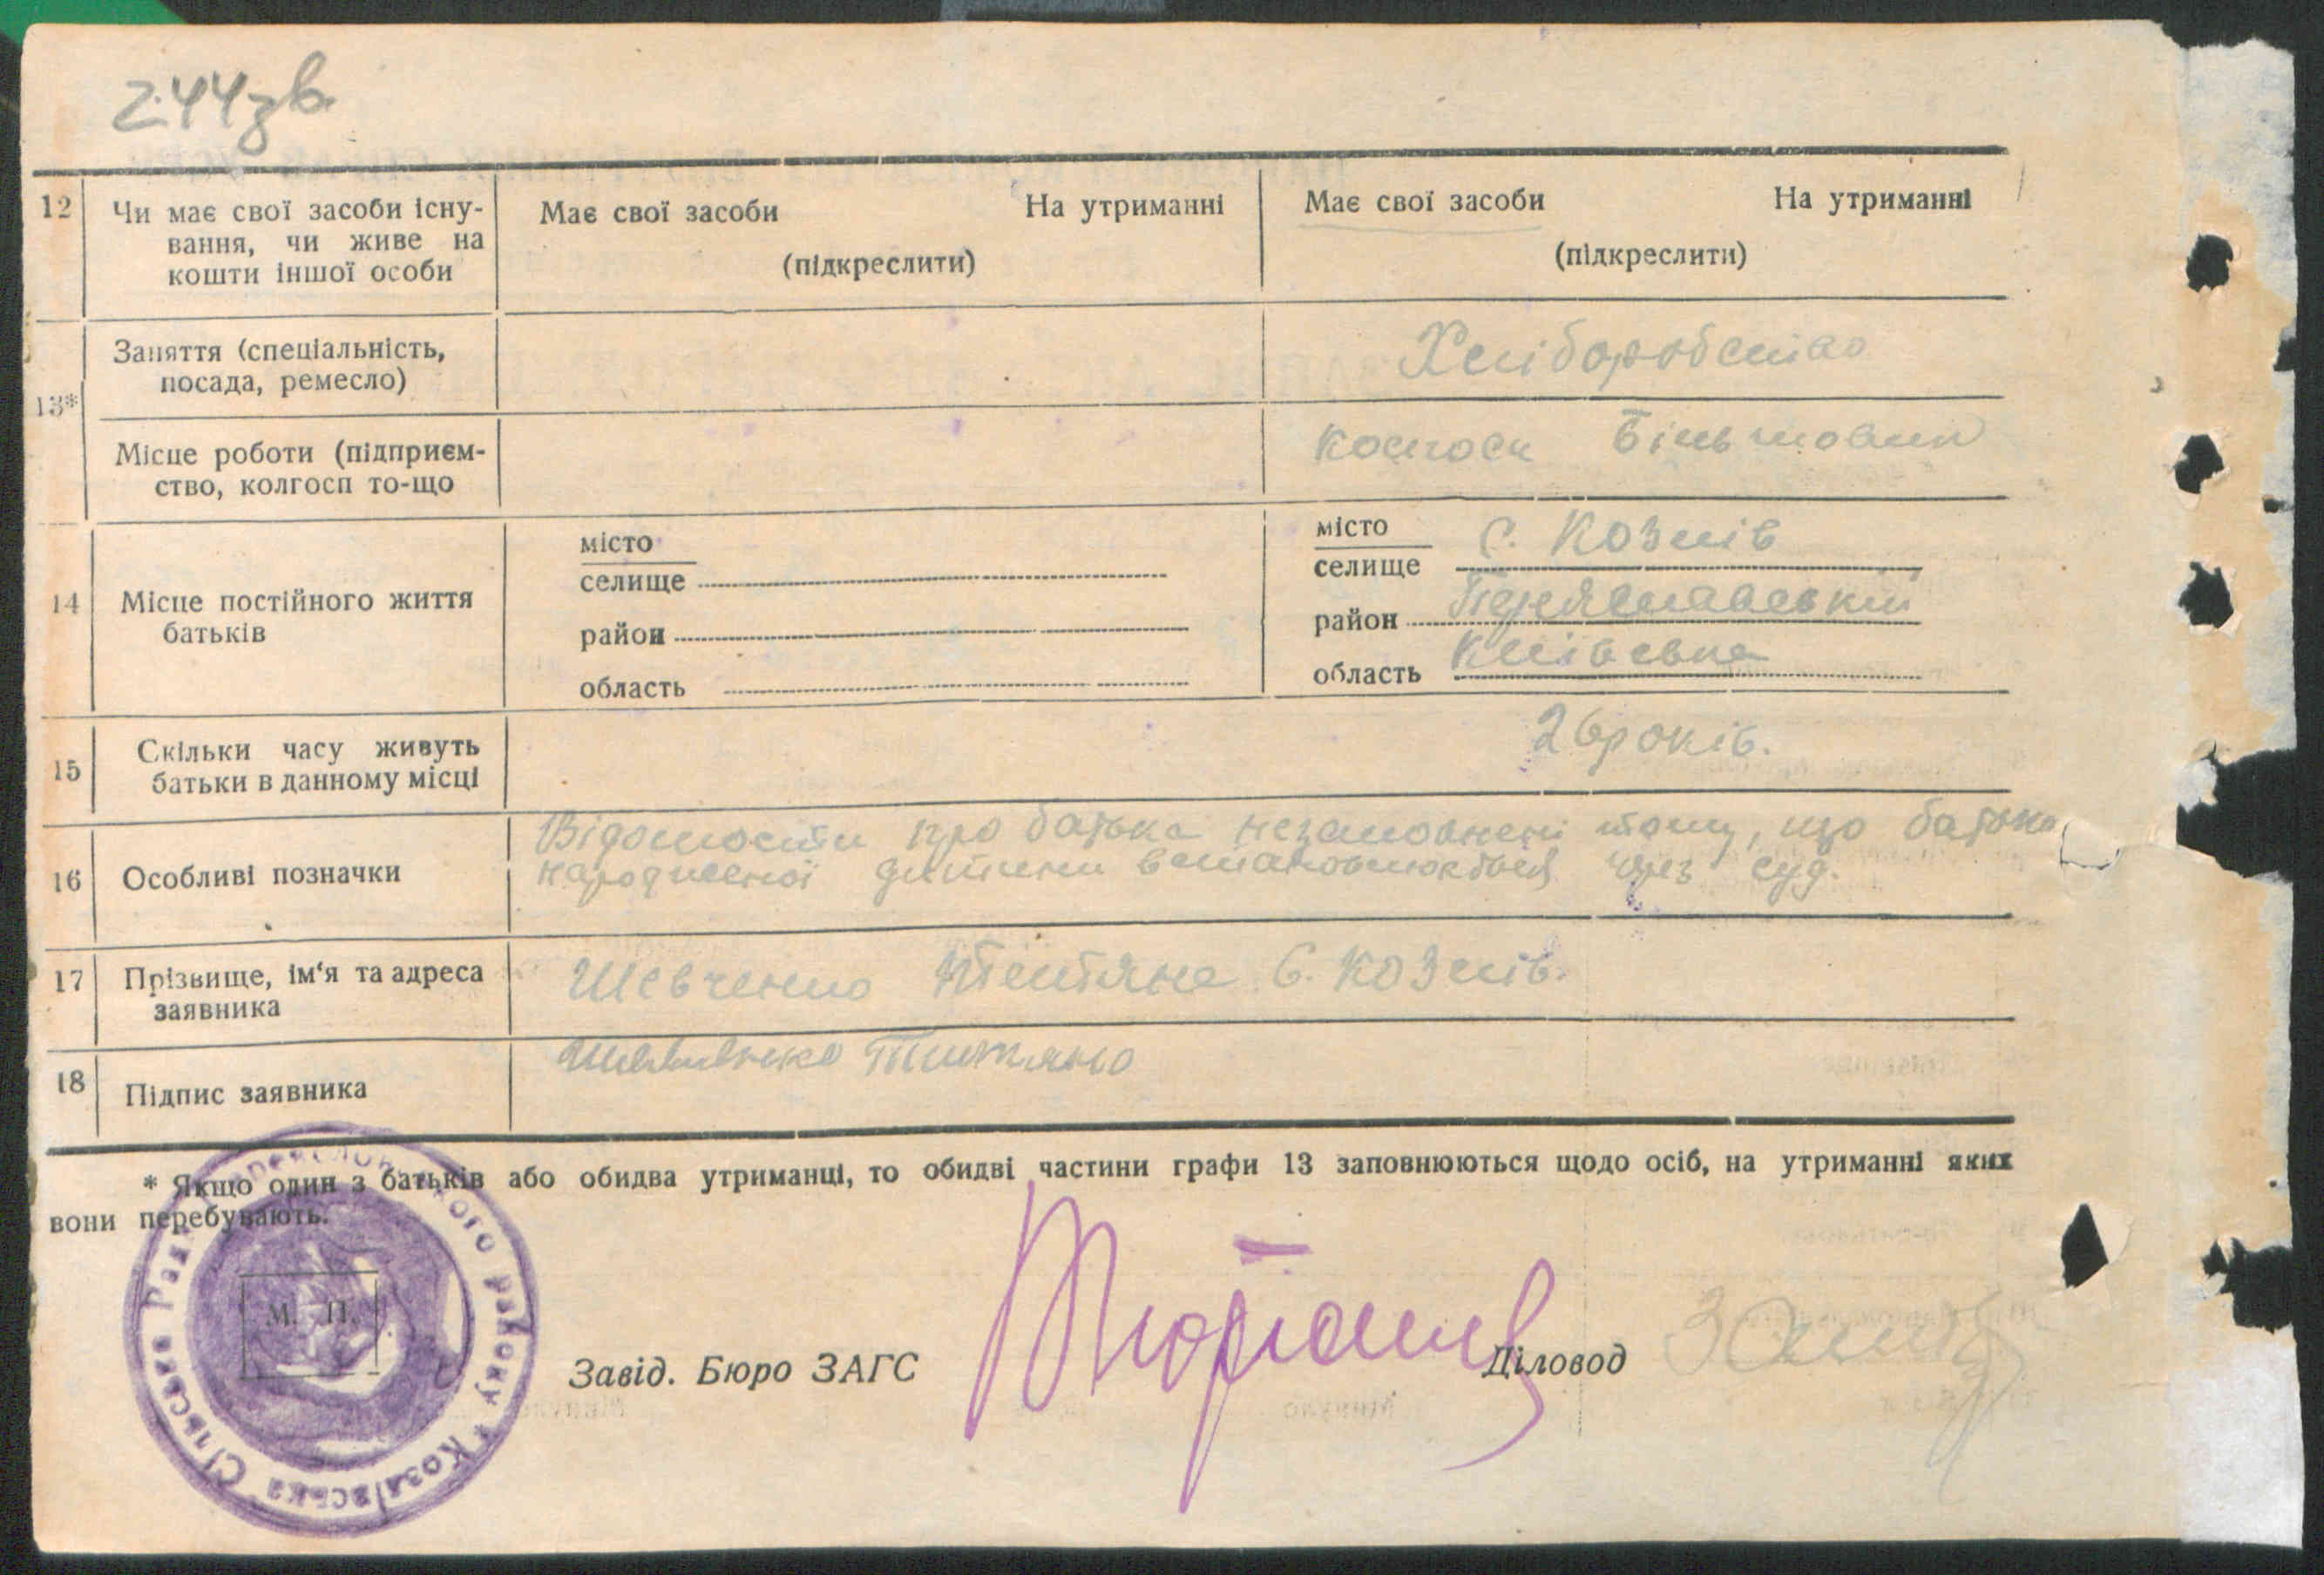 244зв
12 Чи має свої засоби існу- Має свої засоби На утриманні Має свої засоби На утриманні
вання, чи живе на
кошти іншої особи (підкреслити) (підкреслити)
13* Заняття (спеціальність, Хліборобство
посада, ремесло)
Місце роботи (підприєм- Колгосп Більшовик
ство, колгосп то-що
14 Місце постійного життя
батьків
місто
селище
район
область
місто с. Козлів
селище
район Переяславський
область Київська
15 Скільки часу живуть 26 років.
батьки в данному місці
16 Особливі позначки Відомости про батька незаповнені тому, що батько
народженої дитини встановлюється через суд.
17 Прізвище, ім'я та адреса Шевченко Тетяна с. Козлів.
заявника
18 Підпис заявника Шевченко Титяно
* Якщо один з батьків або обидва утриманці, то обидві частини графи 13 заповнюються щодо осіб, на утриманні яких
вони перебувають.
М. П.
Козлівська Сільська Рада району
Завід. Бюро ЗАГС Діловод